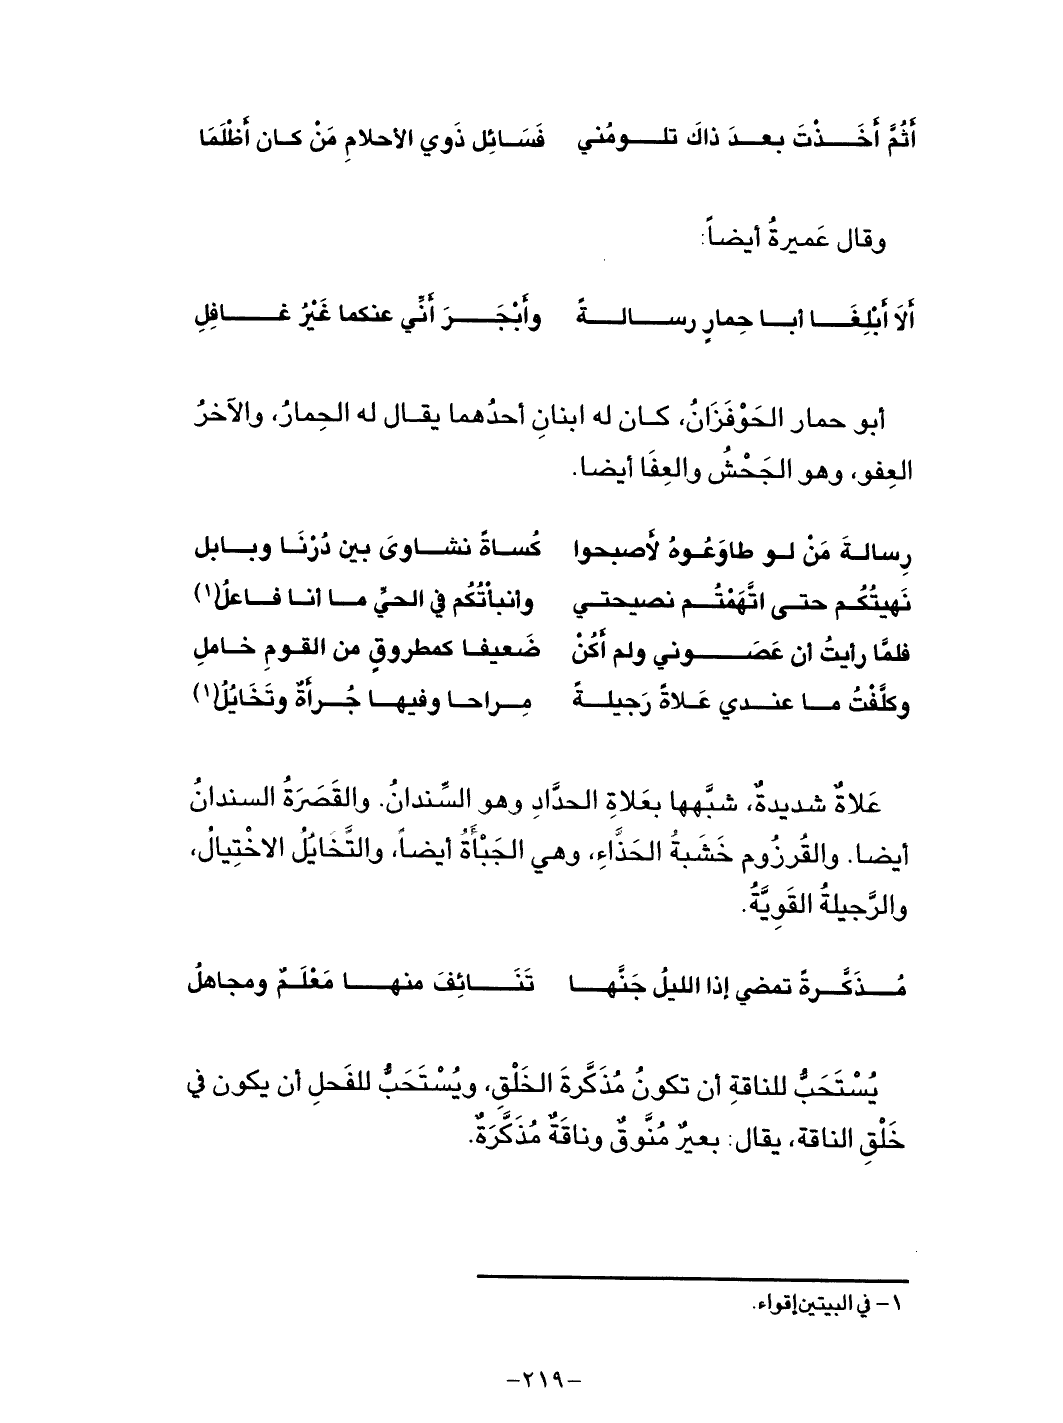 أَثُمَّ أَخَـــذْتَ بعـــدَ ذاكَ تلـــومُني فَسَـائِل ذَوي الأحلامِ مَنْ كـان أَظْلَمَا
وقال عَميرةُ أيضاً:
أَلاَ أَبْلِغَـــا أبـــا حِمارٍ رســـالـــةً وأَبْجَـــرَ أَنِّي عنكما غَيْرُ غـــافِلِ
أبو حمار الحَوْفَزَانُ، كـان له ابنانِ أحدُهما يقـال له الحِمارُ، والآخرُ
العِفو، وهو الجَحْشُ والعِفَا أيضا.
رِسالـةَ مَنْ لـو طاوَعُـوهُ لأَصبحوا كُساةً نشـاوىَ بين دُرْنَـا وبـابل
نَهيتُكُـم حتـى اتَّهَمْتُـم نصيحتـي وأنبأتُكُم في الحيِّ مـا أنـا فـاعلُ(١)
فلمَّا رأيتُ أن عَصَـــوني ولم أَكُنْ ضَعيفـا كمطروقٍ من القـومِ خـاملِ
وكلَّفْتُ مـا عنـدي عَـلاةً رَجيلـةً مِـراحـا وفيهـا جُـرأةٌ وتَخَايُلُ(١)
عَلاةٌ شديدةٌ، شبَّهها بعَلاةِ الحدَّادِ وهو السِّندانُ. والقَصَرَةُ السندانُ
أيضا. والقُرزُوم خَشَبةُ الحَذَّاءِ، وهي الجَبْأَةُ أيضاً، والتَّخايُلُ الاخْتِيالُ،
والرَّجيلةُ القَوِيَّةُ.
مُـــذَكَّـــرةً تمضي إذا الليلُ جَنَّهـــا تَنَـــائِفَ منهـــا مَعْلَـمٌ ومجاهلُ
يُسْتَحَبُّ للناقةِ أن تكونُ مُذَكَّرةَ الخَلْقِ، ويُسْتَحَبُّ للفَحلِ أن يكون في
خَلْقِ الناقة، يقال: بعيرٌ مُنَّوقٌ وناقَةٌ مُذَكَّرَةٌ.
١- في البيتين إقواء.
-٢١٩-